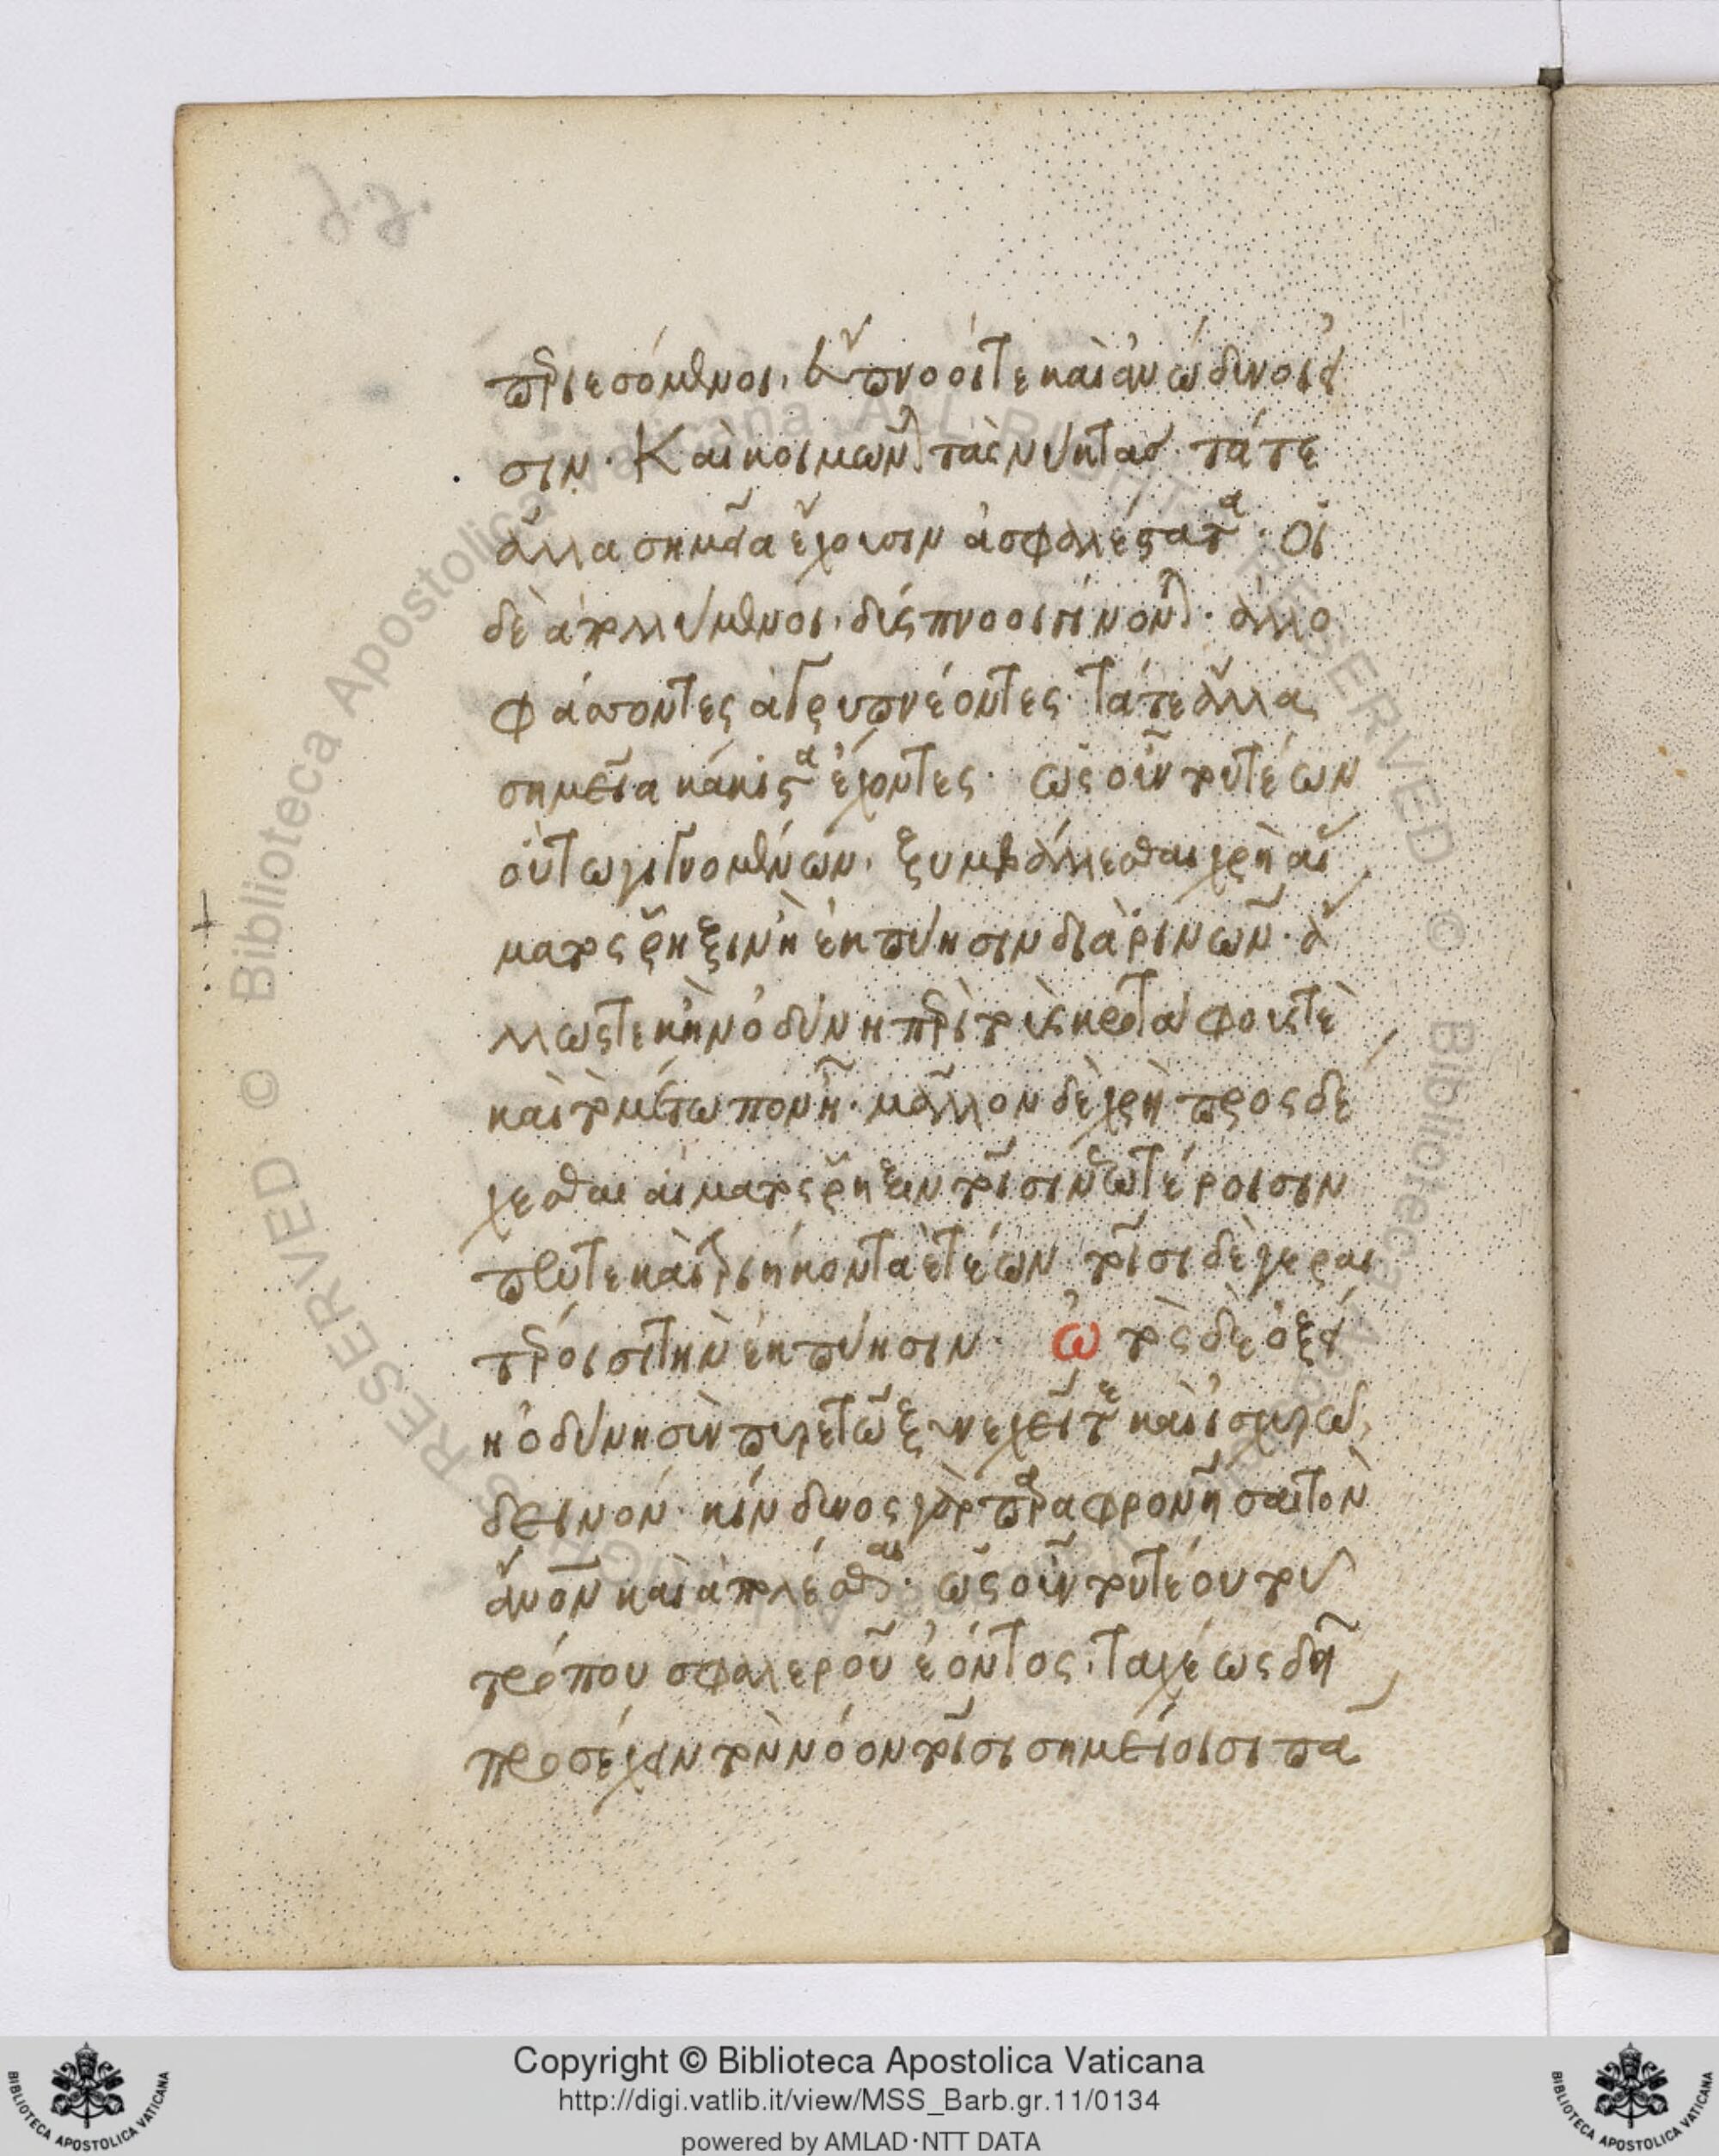 περιεσόμενοι, εὔπνοοί τε καὶ ἀνώδυνοί εἰ
σιν. Καὶ κοιμῶνται τὰς νύκτας. τά τε
ἄλλα σημεῖα ἔχουσιν ἀσφαλέστατα. Οἱ
δὲ ἀπολλύμενοι, δύσπνοοι γίνονται. ἀλλο
φάσσοντες ἀγρυπνέοντες. τά τε ἄλλα
σημεῖα κάκιστα ἔχοντες. ὡς οὖν τουτέων
οὕτω γιγνομένων, ξυμβάλλεσθαι χρὴ αἵ
ματος ῥῆξιν ἢ ἐκπύησιν διὰ ῥινῶν. ἄλ
λως τε κἢν ὀδύνη περὶ τοὺς κροτάφους τε
καὶ τὸ μέτωπον ᾖ. μᾶλλον δὲ χρὴ προσδέ
χεσθαι αἵματος ῥῆξιν τοῖσι νεωτέροισιν
πέντε καὶ τριήκοντα ἐτέων τοῖσι δὲ γεραι
τέροισι τὴν ἐκπύησιν. ὠτὸς δὲ ὀξεί
η ὀδύνη σὺν πυρετῷ ξυνεχεῖ τε καὶ ἰσχυρῷ,
δεινόν. κίνδυνος γὰρ παραφρονῆσαι τὸν
ἄνθρωπον καὶ ἀπολέσθαι. ὡς οὖν τουτέου τοῦ
τρόπου σφαλεροῦ ἐόντος, ταχέως δεῖ
προσέχειν τὸν νόον τοῖσι σημείοισι πᾶ
Copyright © Biblioteca Apostolica Vaticana
http://digi.vatlib.it/view/MSS_Barb.gr.11/0134
powered by AMLAD·NTT DATA